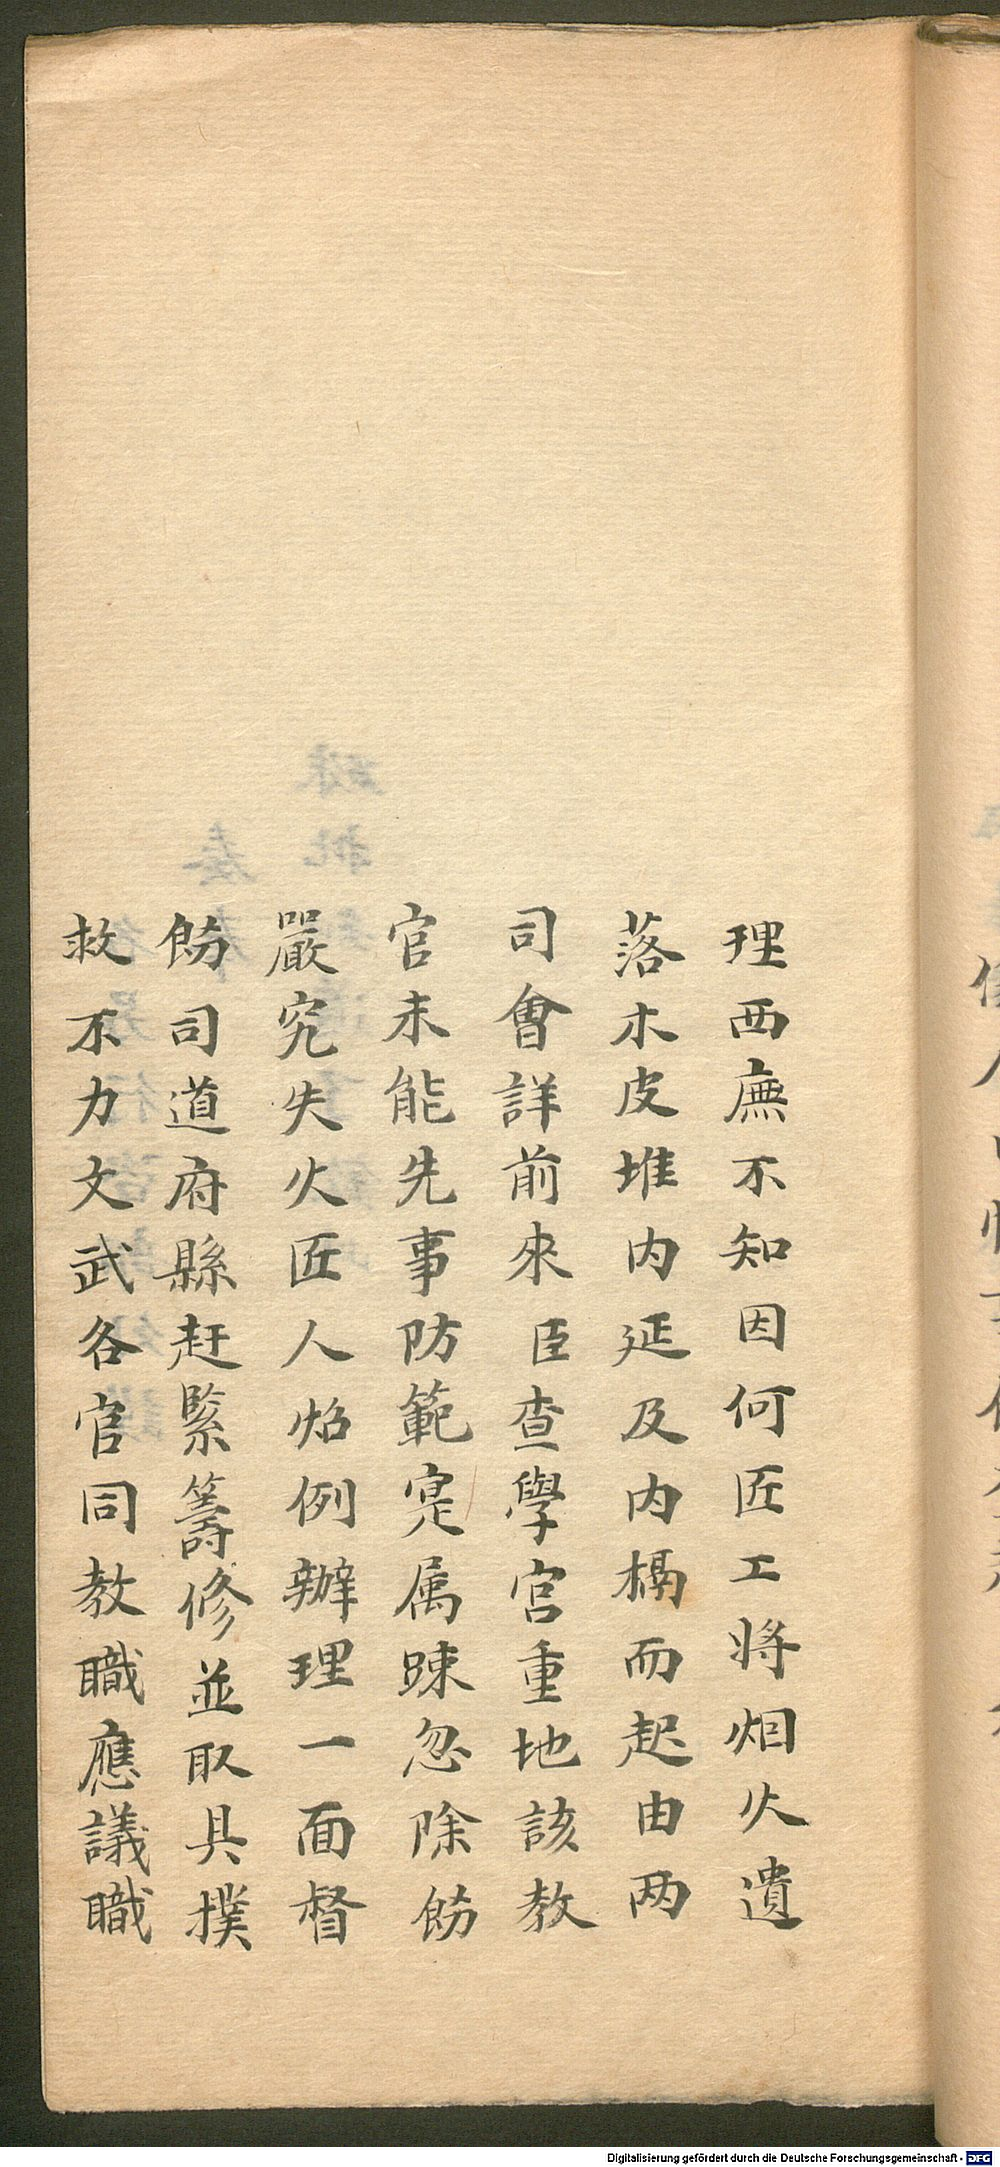 理西廡不知因何匠工將烟火遺
落木皮堆内延及内槅而起由两
司會詳前來臣查學宮重地該教
官未能先事防範寔属踈忽除飭
嚴究失火匠人焰例辦理一面督
飭司道府縣赶緊籌修並取具撲
救不力文武各官同教職應議職
Digitalisierung gefördert durch die Deutsche Forschungsgemeinschaft - DFG